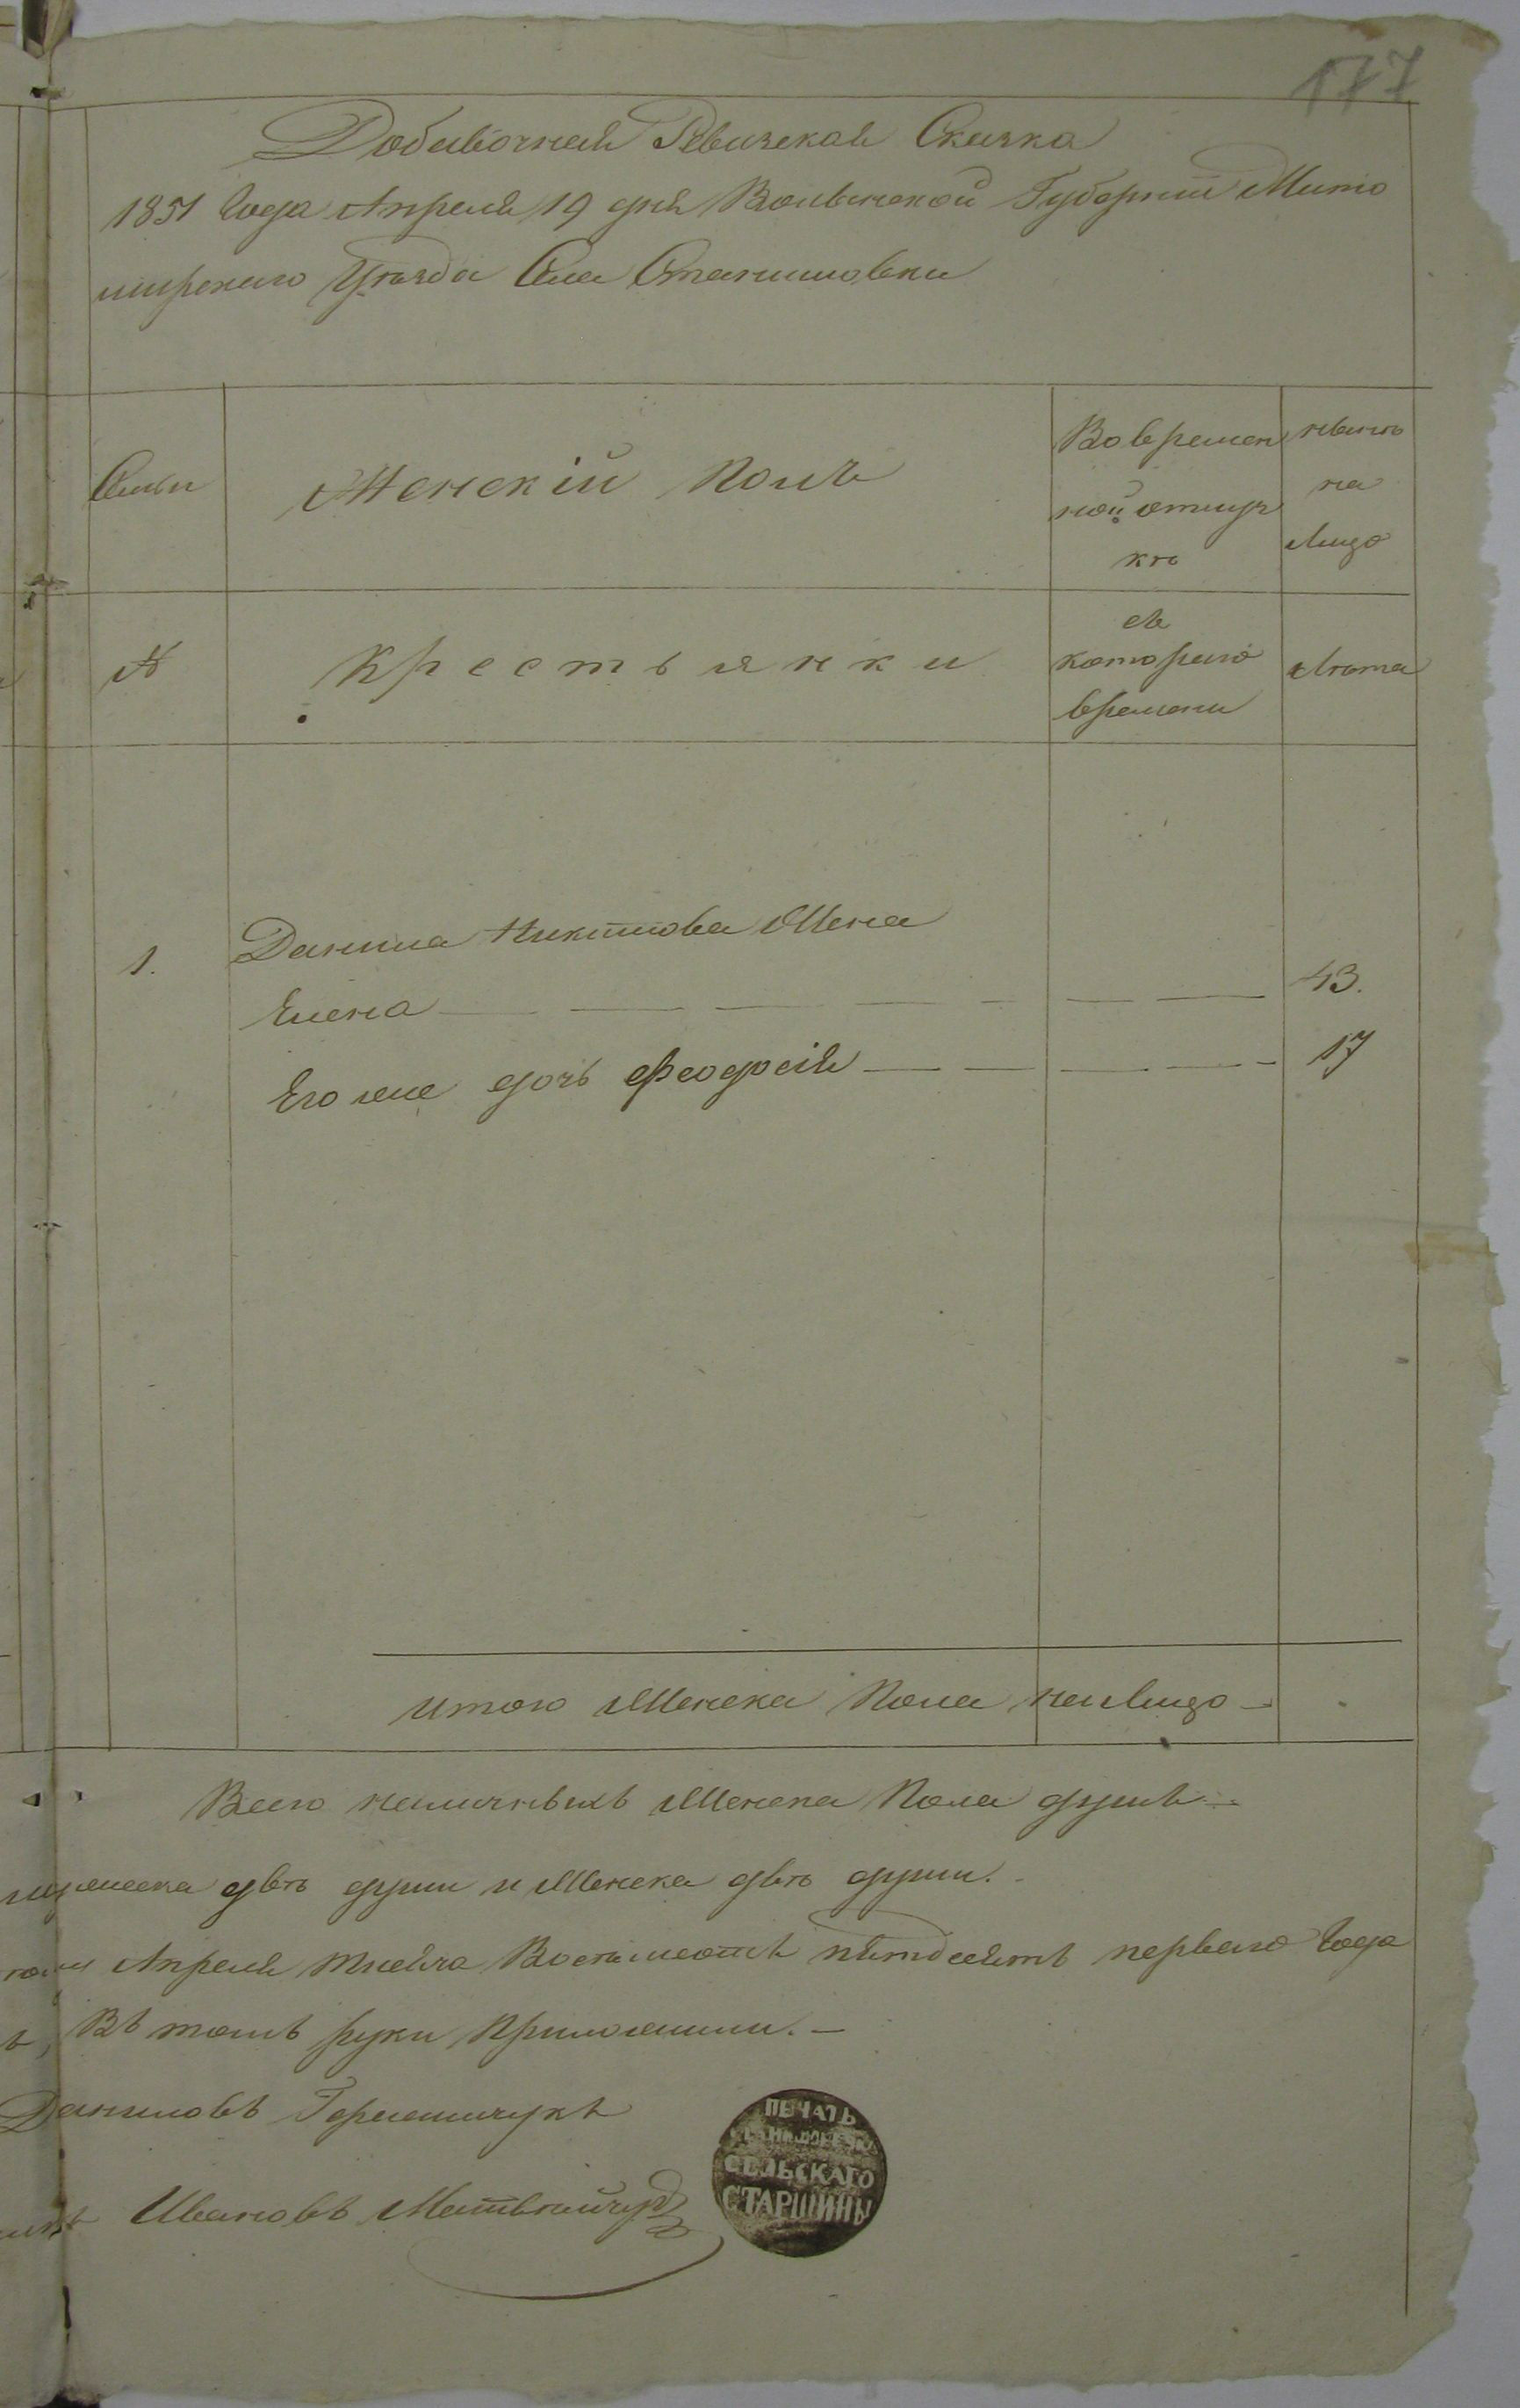 177
Добавочная Ревизская Сказка
1851 Года Апреля 19 дня Волынской Губерніи Жито
мирскаго Уѣзда Села Станишовки
Семьи
Женскій Полъ
Во времен
ной отлуч
кѣ
нынѣ
на
Лицо
№
Крестьянки
съ
котораго
времени
Лѣта
1.
Данила Никитова Жена
Елена
43.
Его же дочь Феодосія
17
Итого Женска Пола на Лицо
Всего наличныхъ Женска Пола душъ
мужеска двѣ души и Женска двѣ души.
Апреля тысяча Восемьсотъ пятдесятъ перваго Года
Въ томъ руки приложили.
Даниловъ Гермашчукъ
Ивановъ Матвѣйчук
ПЕЧАТЬ
СЕЛЬСКАГО
СТАРШИНЫ